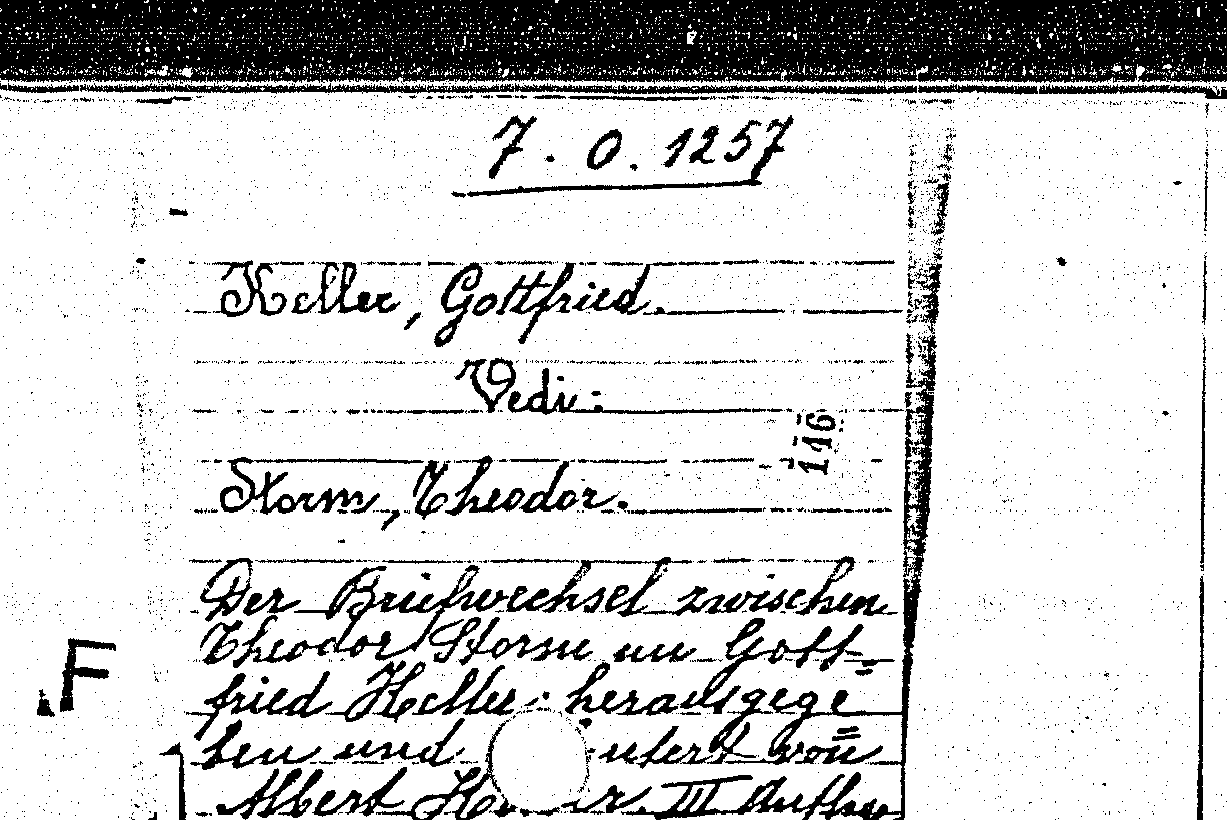 7. 0. 1257
Keller, Gottfried.
Vedi:
116
Storm, Theodor.
Der Briefwechsel zwischen
Theodor Storm un Gott=
fried Keller. herausgege=
ben und von
Albert III Aufla
F